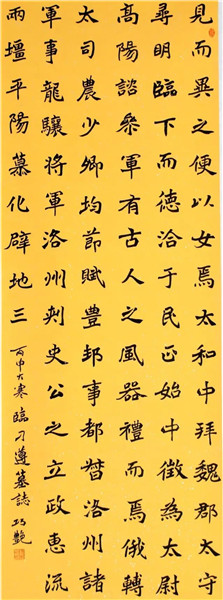 見而異之便以女焉太和中拜魏郡太守
尋明臨下而德洽于民正始中徵為太尉
高陽諮參軍有古人之風器禮而焉俄轉
太司農少卿均節賦豊邦事都督洛州諸
軍事龍驤將軍洛州刺史公之立政惠流
兩壇平陽慕化辟地三
丙申大寒臨刁遵墓誌 巧艷